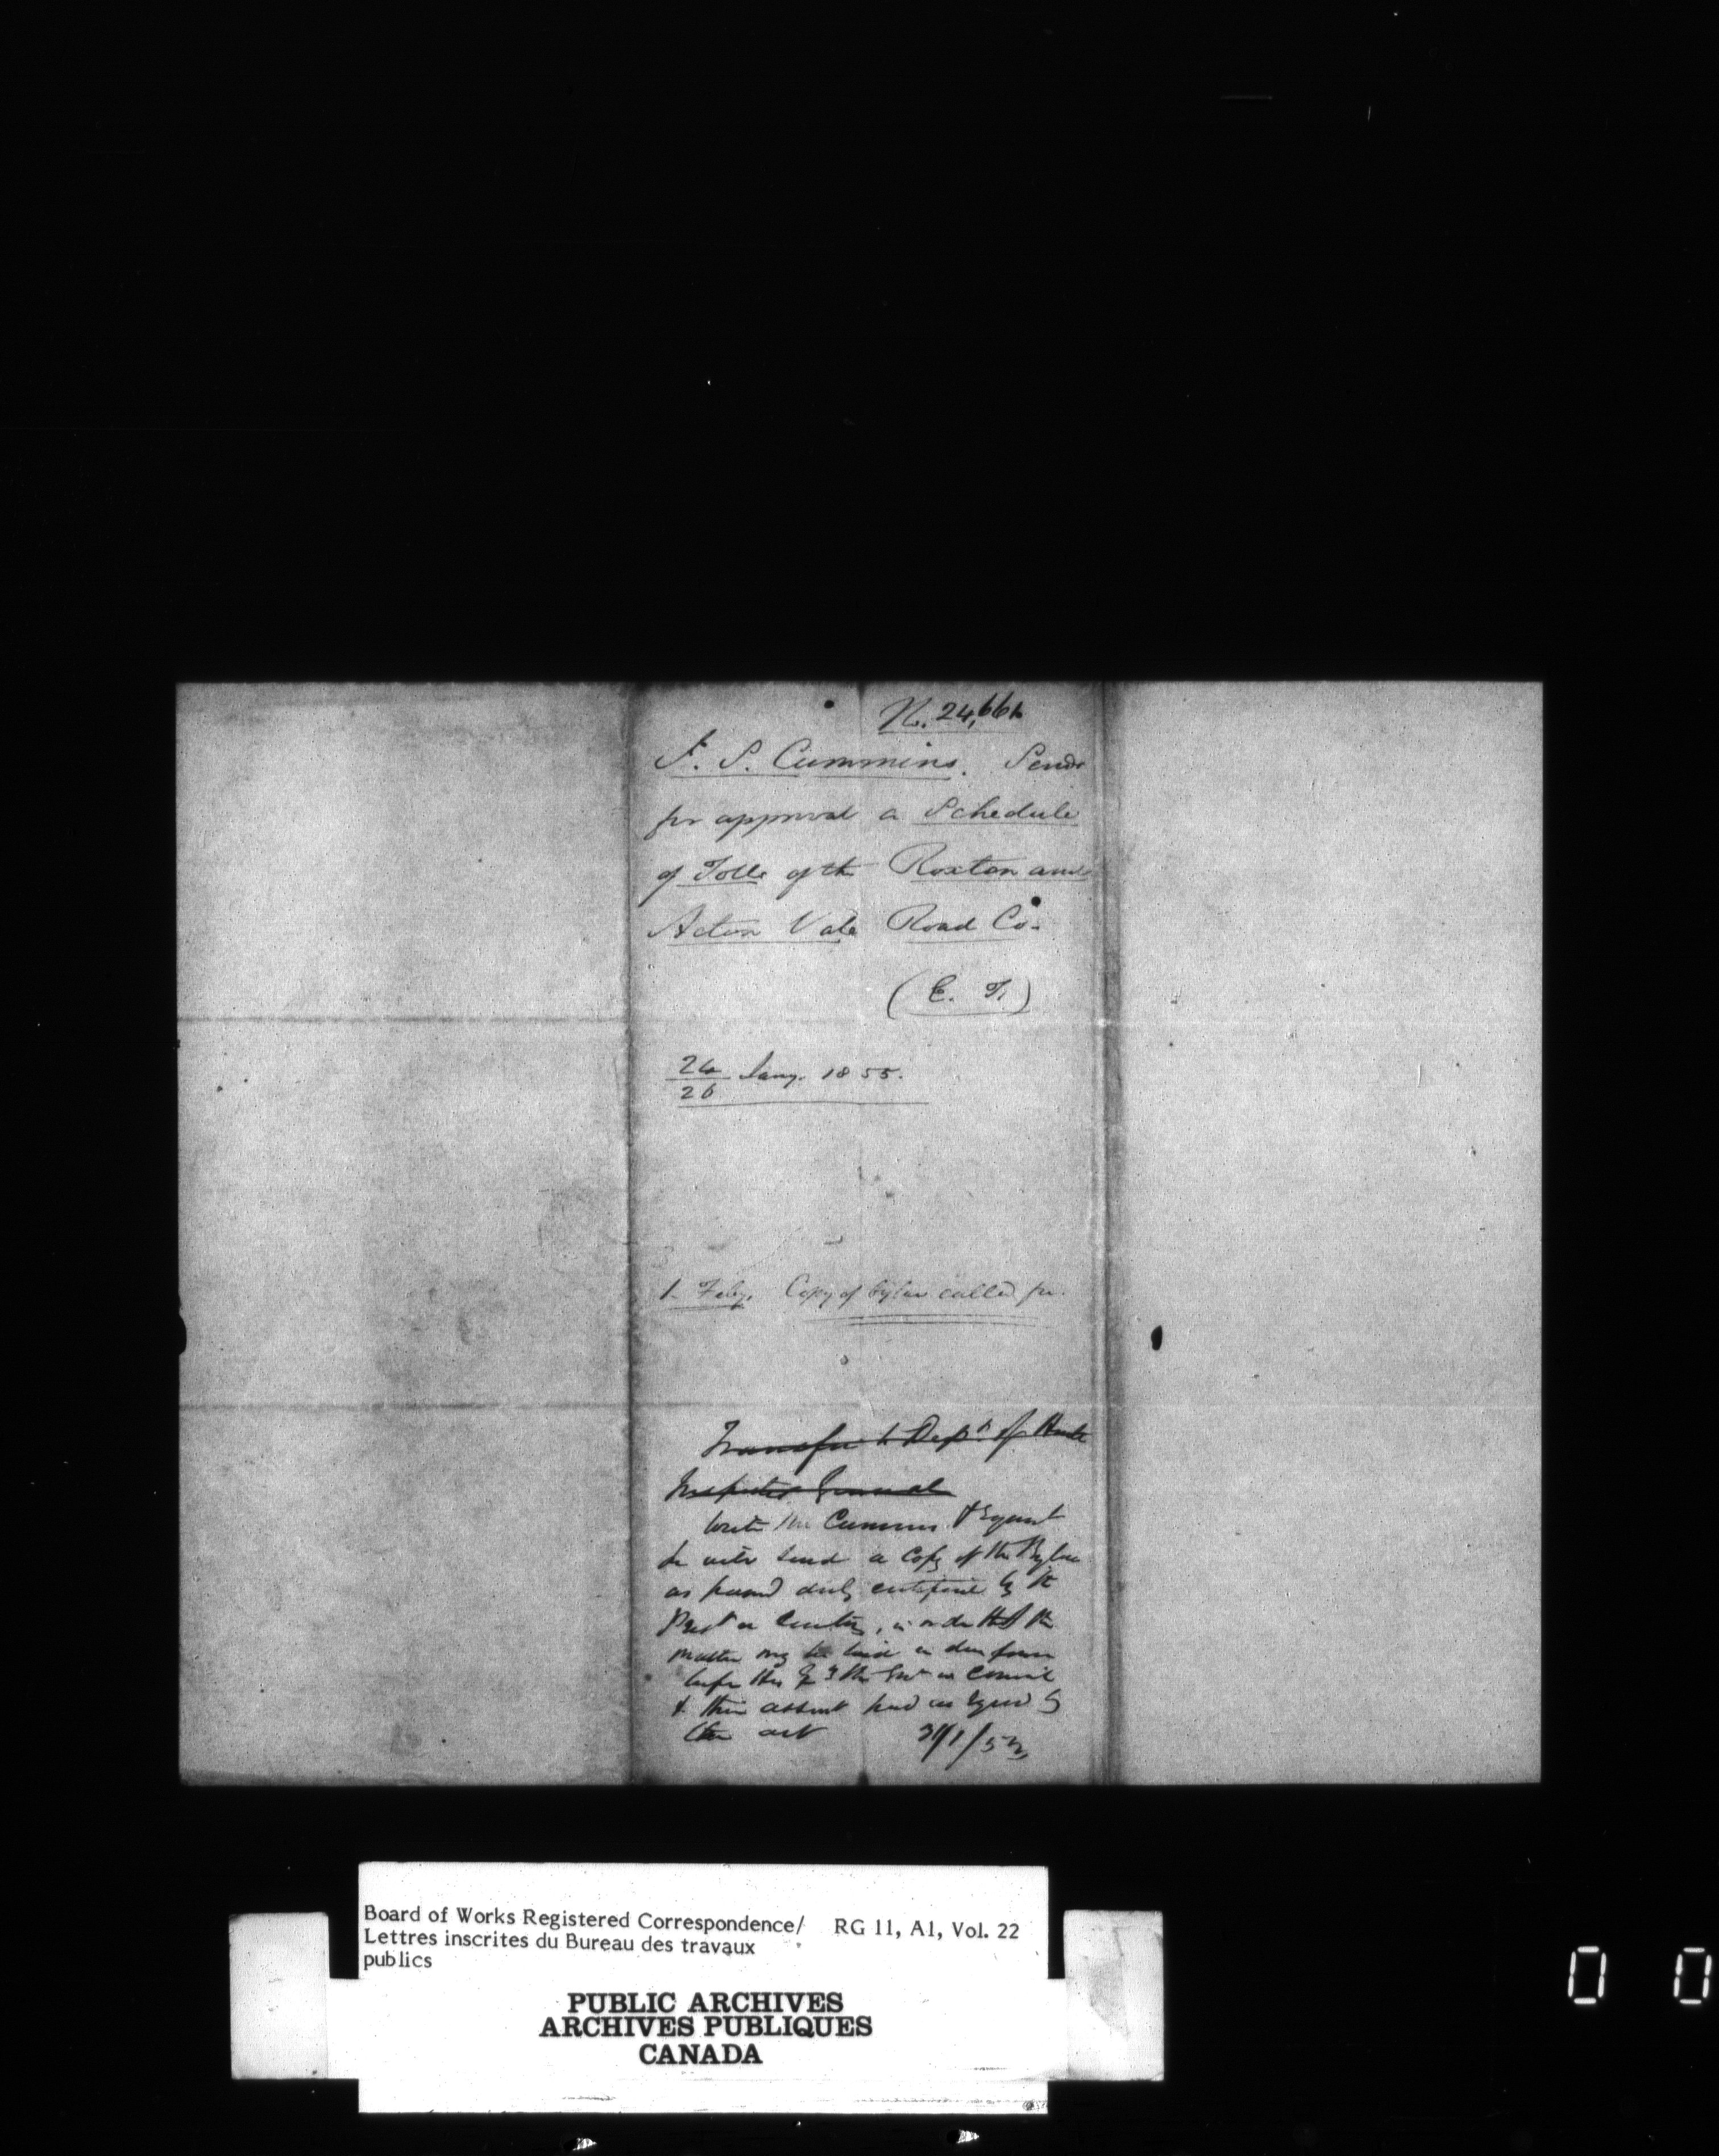 N. 24,661
S. Cummins. Sends
for approval a Schedule
of Tolls of the Roxton and
Acton Vale Road Co.
(E. T.)
26 Jany. 1855.
1 Feby. Copy of bylaw called for.
Transfer to Dept of
Inspector General
Write Mr Cummins & request
he will send a Copy of the Bylaw
as passed duly certified by the
Prest or Secretary, in order that the
matter may be laid in due form
before His Ex the Govr in Council
& their assent had as reqred by
the act
31/1/55
Board of Works Registered Correspondence/ RG 11, A1, Vol. 22
Lettres inscrites du Bureau des travaux
publics
PUBLIC ARCHIVES
ARCHIVES PUBLIQUES
CANADA
0 0